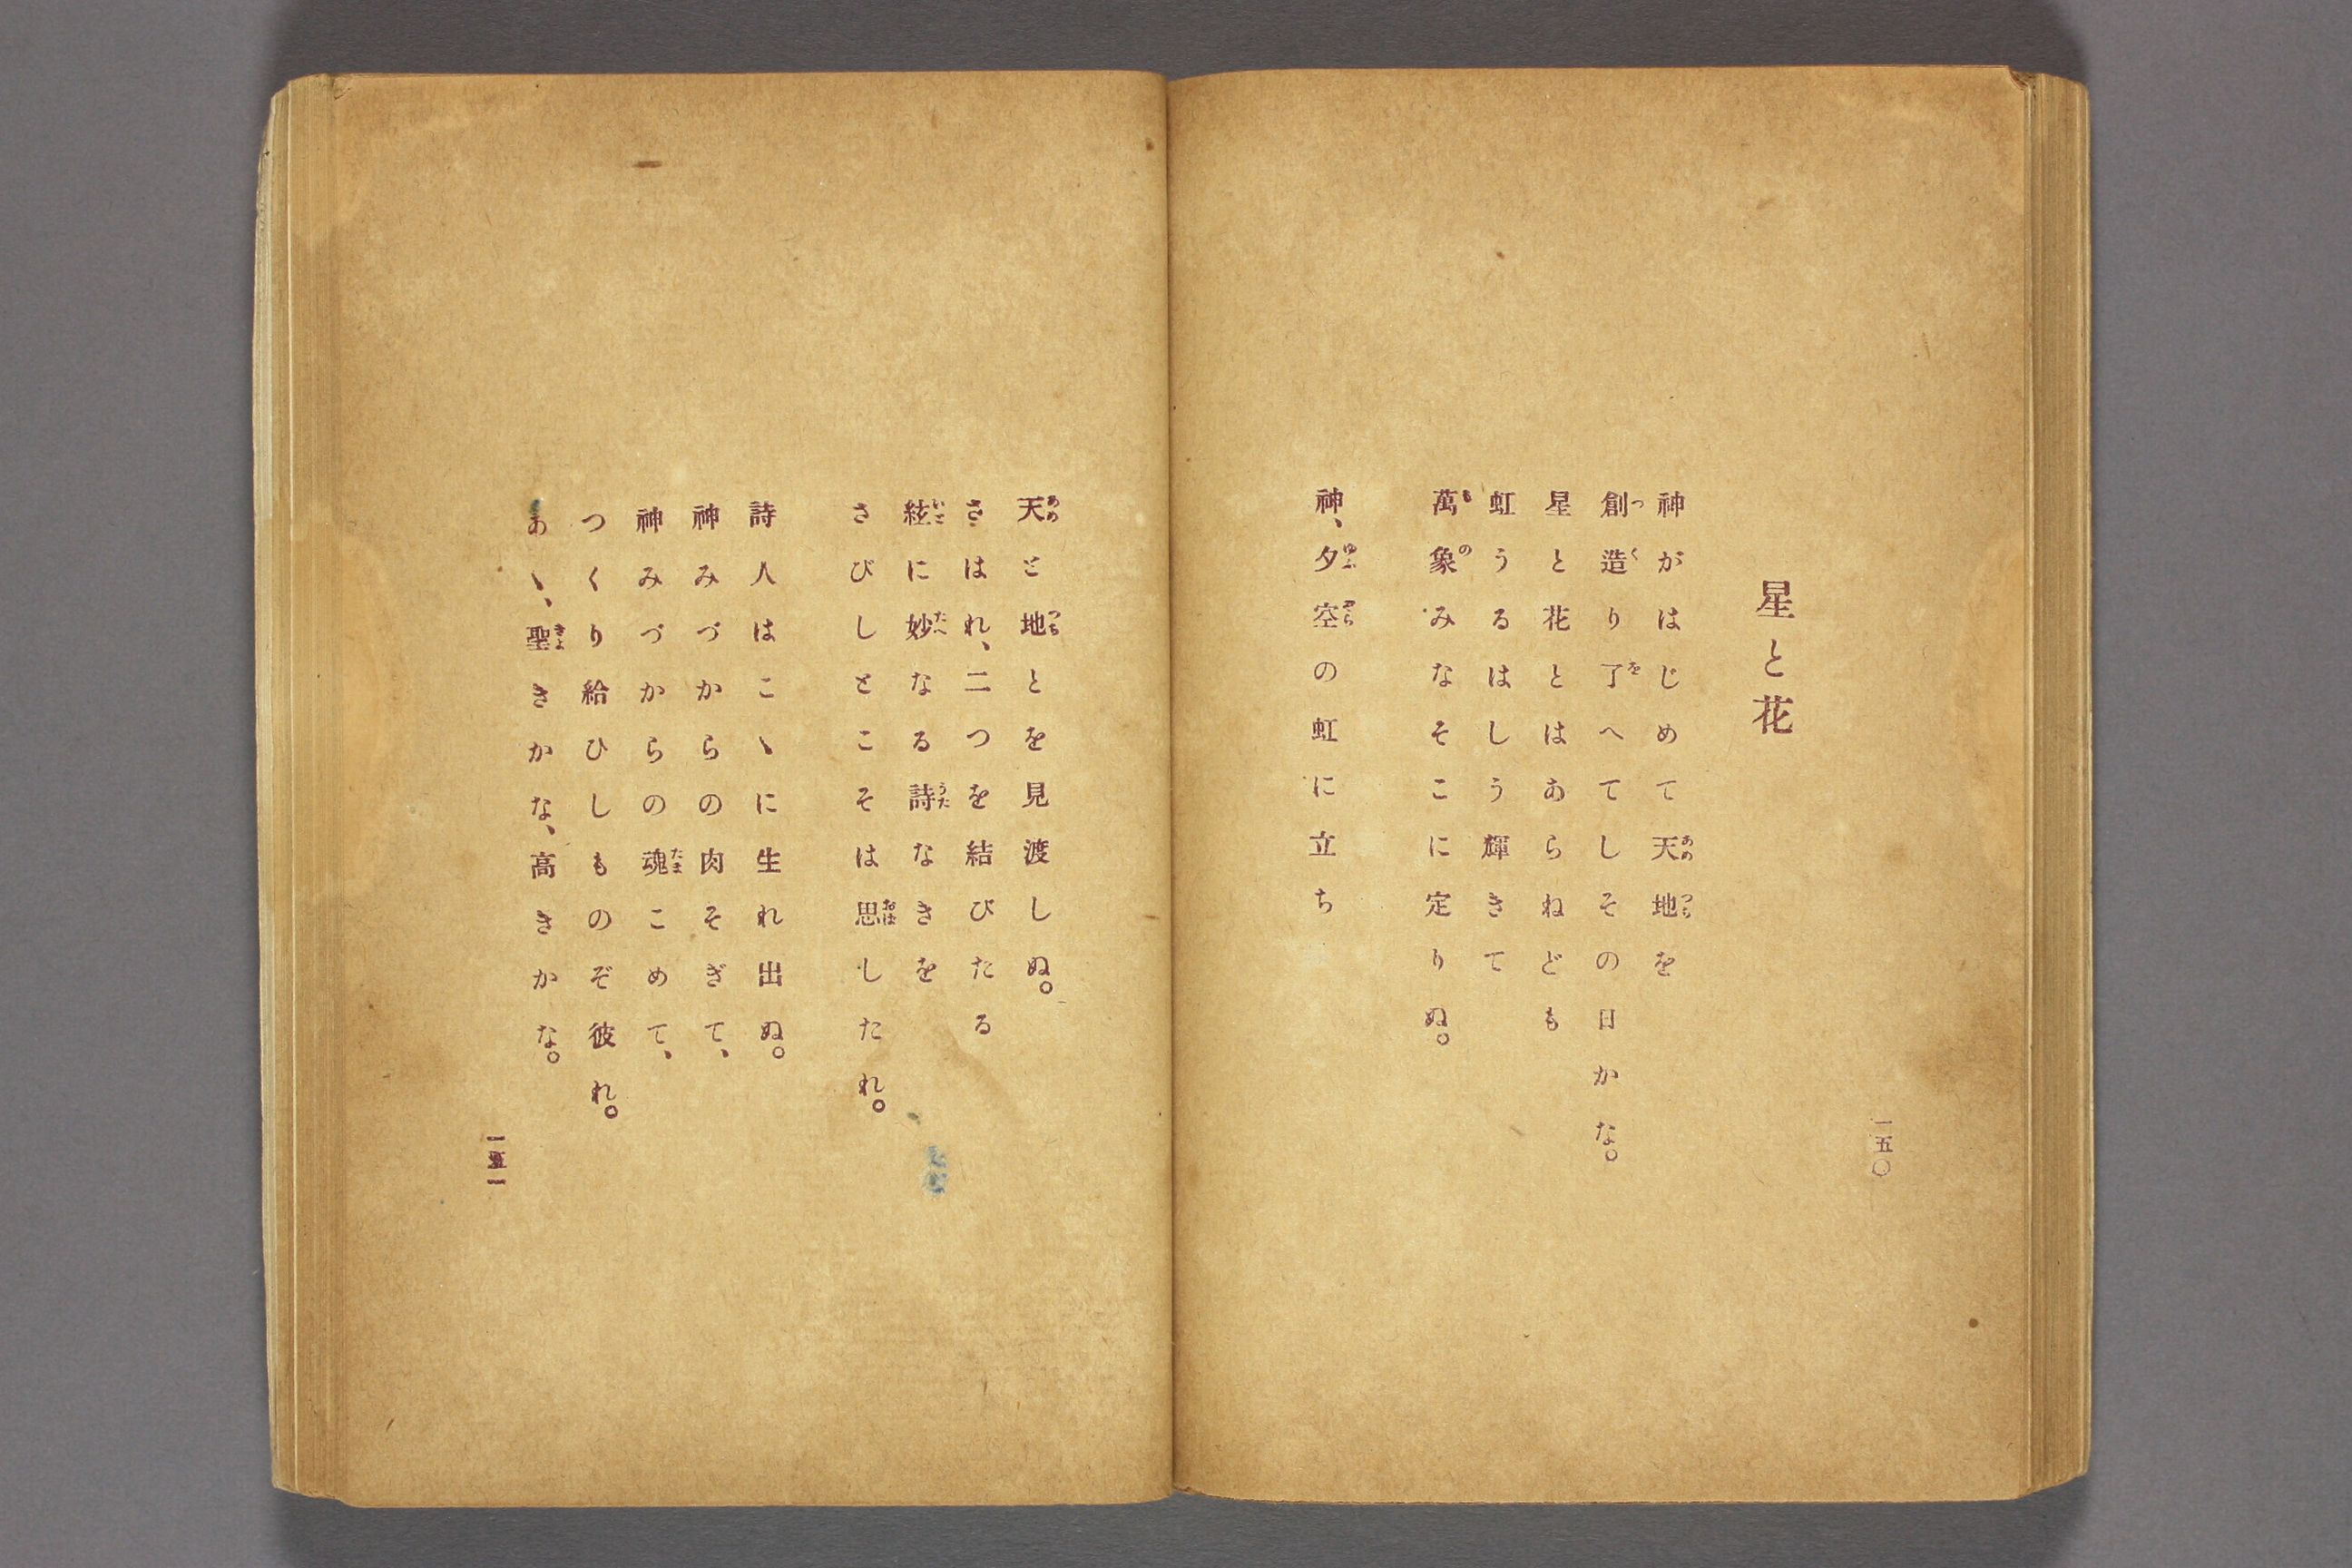 一五〇
星と花
神がはじめて天地を
創造り了へてしその日かな。
星と花とはあらねども
虹うるはしう輝きて
萬象みなそこに定りぬ。
神、夕空の虹に立ち
天と地とを見渡しぬ。
さはれ、二つを結びたる
絃に妙なる詩なきを
さびしとこそは思したれ。
詩人はこゝに生れ出ぬ。
神みづからの肉そぎて、
神みづからの魂こめて、
つくり給ひしものぞ彼れ。
あゝ、聖きかな、高きかな。
一五一